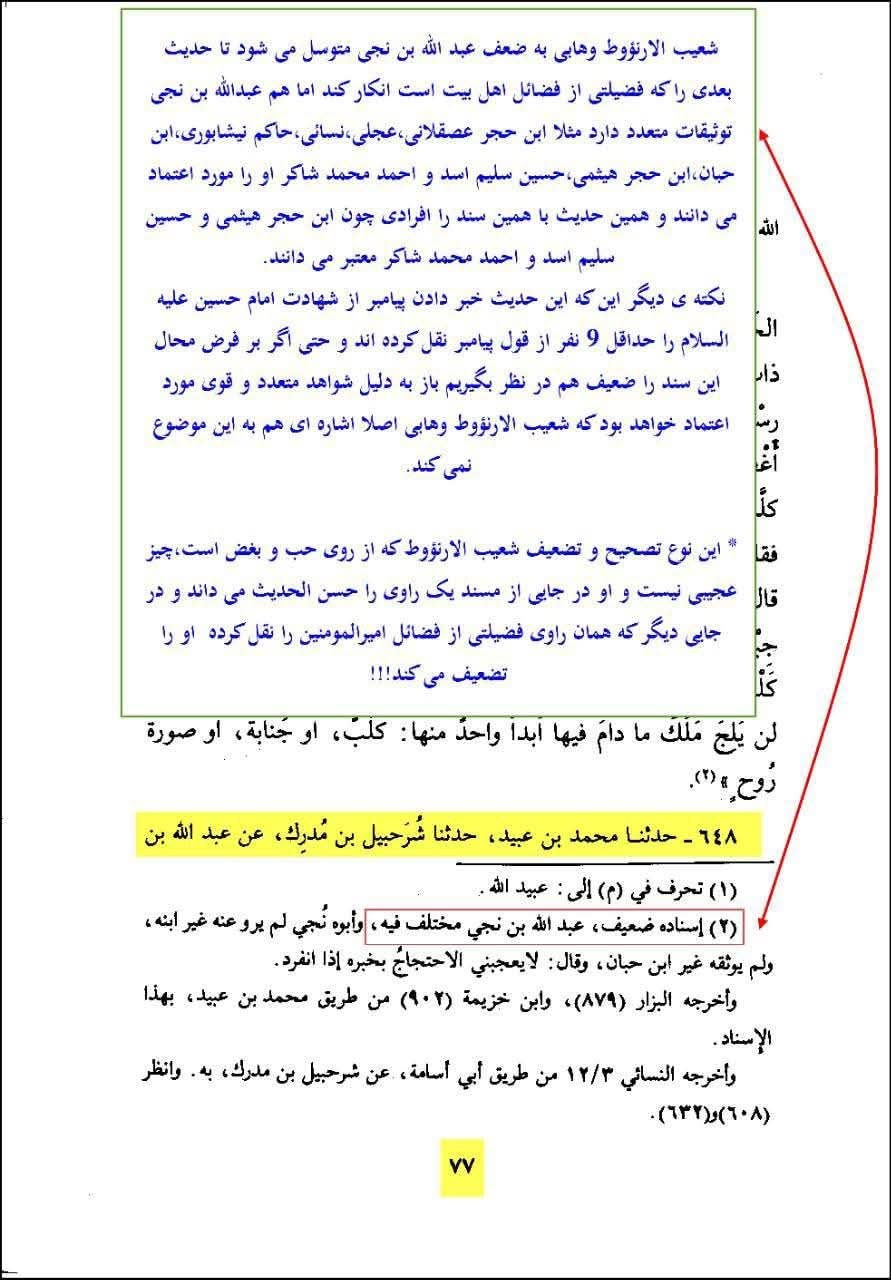 شعیب الارنؤوط وهابی به ضعف عبد الله بن نجی متوسل می شود تا حدیث
بعدی را که فضیلتی از فضائل اهل بیت است انکار کند اما هم عبدالله بن نجی
توثیقات متعدد دارد مثلا ابن حجر عصقلانی،عجلی،نسائی،حاکم نیشابوری،ابن
حبان،ابن حجر هیثمی،حسین سلیم اسد و احمد محمد شاکر او را مورد اعتماد
می دانند و همین حدیث با همین سند را افرادی چون ابن حجر هیثمی و حسین
سلیم اسد و احمد محمد شاکر معتبر می دانند.
نکته ی دیگر این که این حدیث خبر دادن پیامبر از شهادت امام حسین علیه
السلام را حداقل 9 نفر از قول پیامبر نقل کرده اند و حتی اگر بر فرض محال
این سند را ضعیف هم در نظر بگیریم باز به دلیل شواهد متعدد و قوی مورد
اعتماد خواهد بود که شعیب الارنؤوط وهابی اصلا اشاره ای هم به این موضوع
نمی کند.
* این نوع تصحیح و تضعیف شعیب الارنؤوط که از روی حب و بغض است،چیز
عجیبی نیست و او در جایی از مسند یک راوی را حسن الحدیث می داند و در
جایی دیگر که همان راوی فضیلتی از فضائل امیرالمومنین را نقل کرده او را
تضعیف می کند!!!
الله
لن يَلِجَ مَلَكٌ ما دامَ فيها أبداً واحدٌ منها: كلبٌ، أو جَنابة، أو صورة
رُوحٍ» (٢).
٦٤٨ ـ حدثنا محمد بن عبيد، حدثنا شُرَحبيل بن مُدرِك، عن عبد الله بن
(١) تحرف في (م) إلى: عبيد الله.
(٢) إسناده ضعيف، عبد الله بن نجي مختلف فيه، وأبوه نُجي لم يرو عنه غير ابنه،
ولم يوثقه غير ابن حبان، وقال: لايعجبني الاحتجاجُ بخبره إذا انفرد.
وأخرجه البزار (٨٧٩)، وابن خزيمة (٩٠٢) من طريق محمد بن عبيد، بهذا
الإسناد.
وأخرجه النسائي ١٢/٣ من طريق أبي أسامة، عن شرحبيل بن مدرك، به. وانظر
(٦٠٨)و(٦٣٢).
٧٧